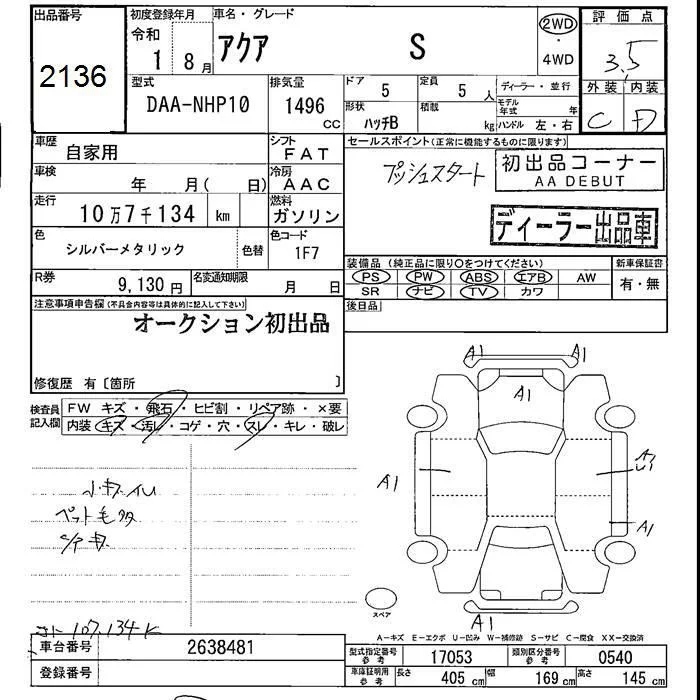 出品番号
2136
初度登録年月
令和
1 8月
車名・グレード
アクア S
2WD
・
4WD
評価点
3.5
外装 内装
C D
型式
DAA-NHP10
排気量
1496
CC
ドア
5
定員
5 人
ディーラー・並行
モデル年式 年
形状
ハッチB
積載
kg
ハンドル 左・右
車歴
自家用
シフト
FAT
車検
年 月( 日)
冷房
AAC
走行
10万7千134 km
燃料
ガソリン
色
シルバーメタリック
色替
色コード
1F7
R券
9,130円
名変通知期限
月 日
セールスポイント(正常に機能するものに限ります)
プッシュスタート
初出品コーナー
AA DEBUT
ディーラー出品車
装備品(純正品に限り○をつけてください)
PS PW ABS エアB AW
SR ナビ TV カワ
新車保証書
有・無
後日品
注意事項申告欄(不具合内容等は具体的に記入して下さい)
オークション初出品
修復歴 有〔箇所 〕
検査員
記入欄
FW キズ・飛石・ヒビ割・リペア跡・×要
内装 キズ・汚レ・コゲ・穴・スレ・キレ・破レ
ペット毛多
107,134K
A1
A1
A1
A1
A1
A1
スペア
A−キズ E−エクボ U−凹み W−補修跡 S−サビ C−腐食 XX−交換済
車台番号
2638481
登録番号
型式指定番号
参考
17053
類別区分番号
参考
0540
車庫証明用
参考
長さ
405 cm
幅
169 cm
高さ
145 cm